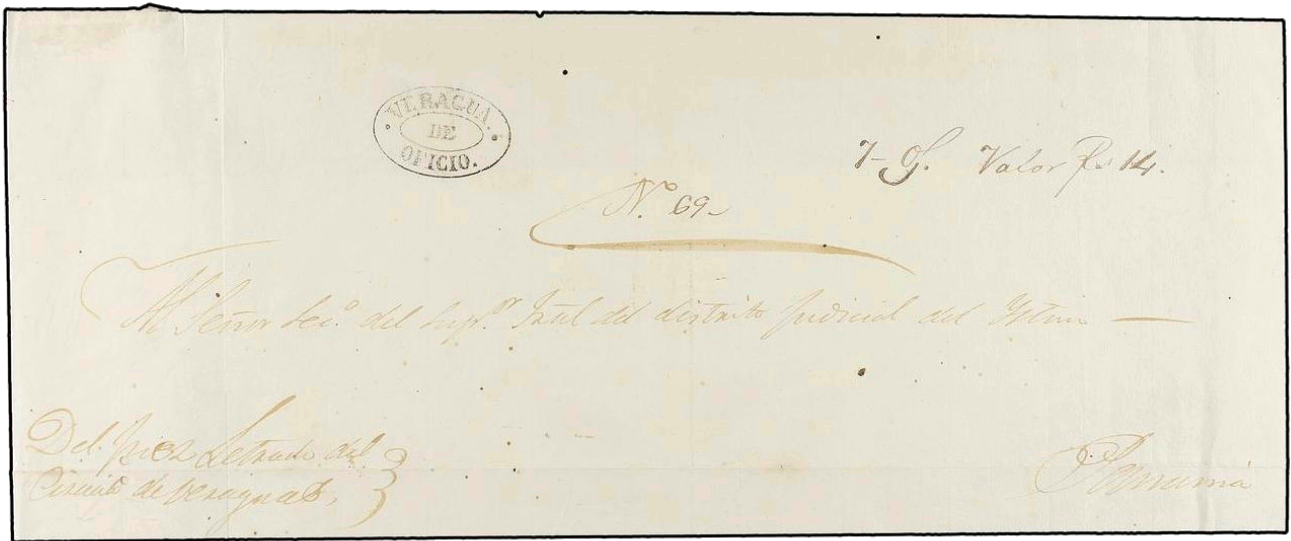 VERAGUA.
DE
OFICIO.
7- Valor Rs 14.
Nº 69
Al Señor Sec.º del Supr. Tral del distrito judicial del Istmo
Del Juez Letrado del
Circuito de Veraguas,
Panamá